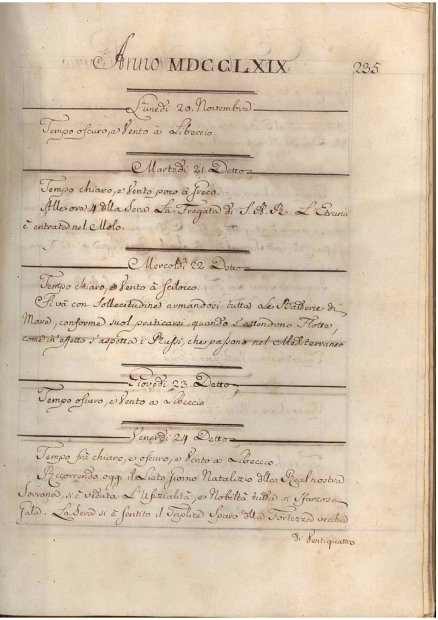 Anno MDCCLXIX 235
Lunedì 20. Novembre
Tempo oscuro, e Vento à Libeccio
Martedì 21 Detto
Tempo chiaro, e Vento poco à Greco.
All'ore 4 della Sera La Fregata di S.A.R. L'Etruria
è entrata nel Molo.
Mercoldì 22 Detto
Tempo chiaro, e Vento à Scilocco.
Si và con Sollecitudine armandosi tutte Le Batterie di
Mare, conforme suol praticarsi, quando s'attendono Flotte,
come n'effetto s'aspetta i Russi, che passano nel Mediterraneo
Giovedì 23. Detto
Tempo oscuro, e Vento à Libeccio
Venerdì 24 Detto
Tempo frà chiaro, e oscuro, e Vento à Libeccio.
Ricorrendo oggi il Lieto Giorno Natalizio della Real nostra
Sovrana, si è veduta L'Ufizialità, e Nobiltà tutta in Sfarzosa
Gala. La Sera si è sentito il Triplice Sparo della Fortezza vecchia
di Ventiquattro